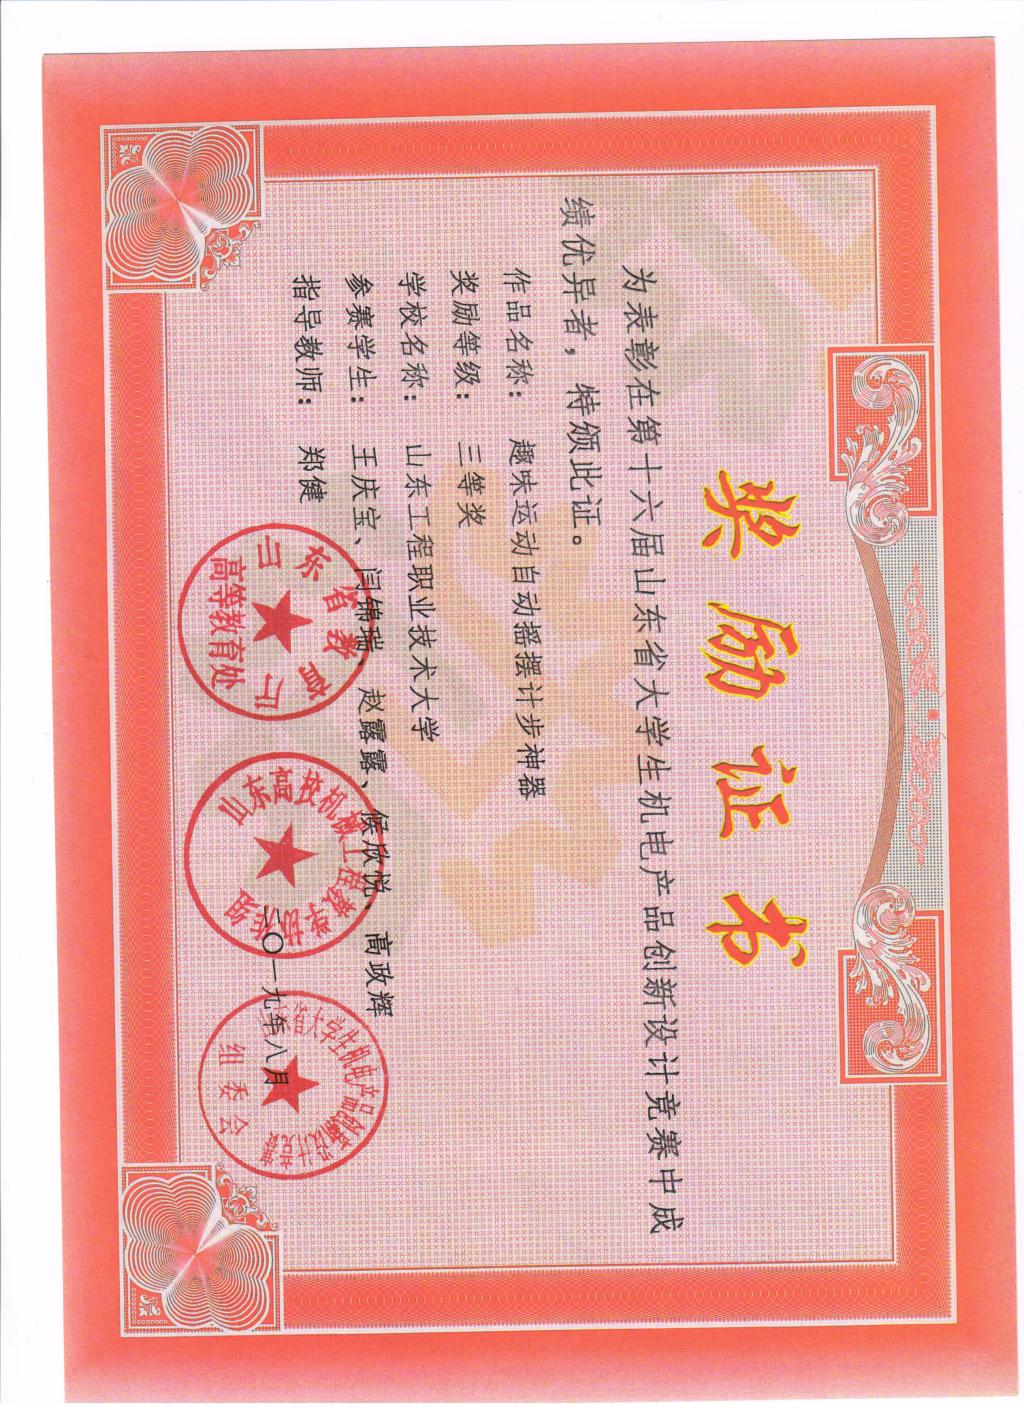 奖励证书
为表彰在第十六届山东省大学生机电产品创新设计竞赛中成
绩优异者，特颁此证。
作品名称：趣味运动自动摇摆计步神器
奖励等级：三等奖
学校名称：山东工程职业技术大学
参赛学生：王庆宝、闫锦瑞、赵露露、候欣悦、高政辉
指导教师：郑健
山东省教育厅
高等教育处
山东高校机械工程教学协作组
省大学生机电产品创新设计竞赛
组委会
二〇一九年八月